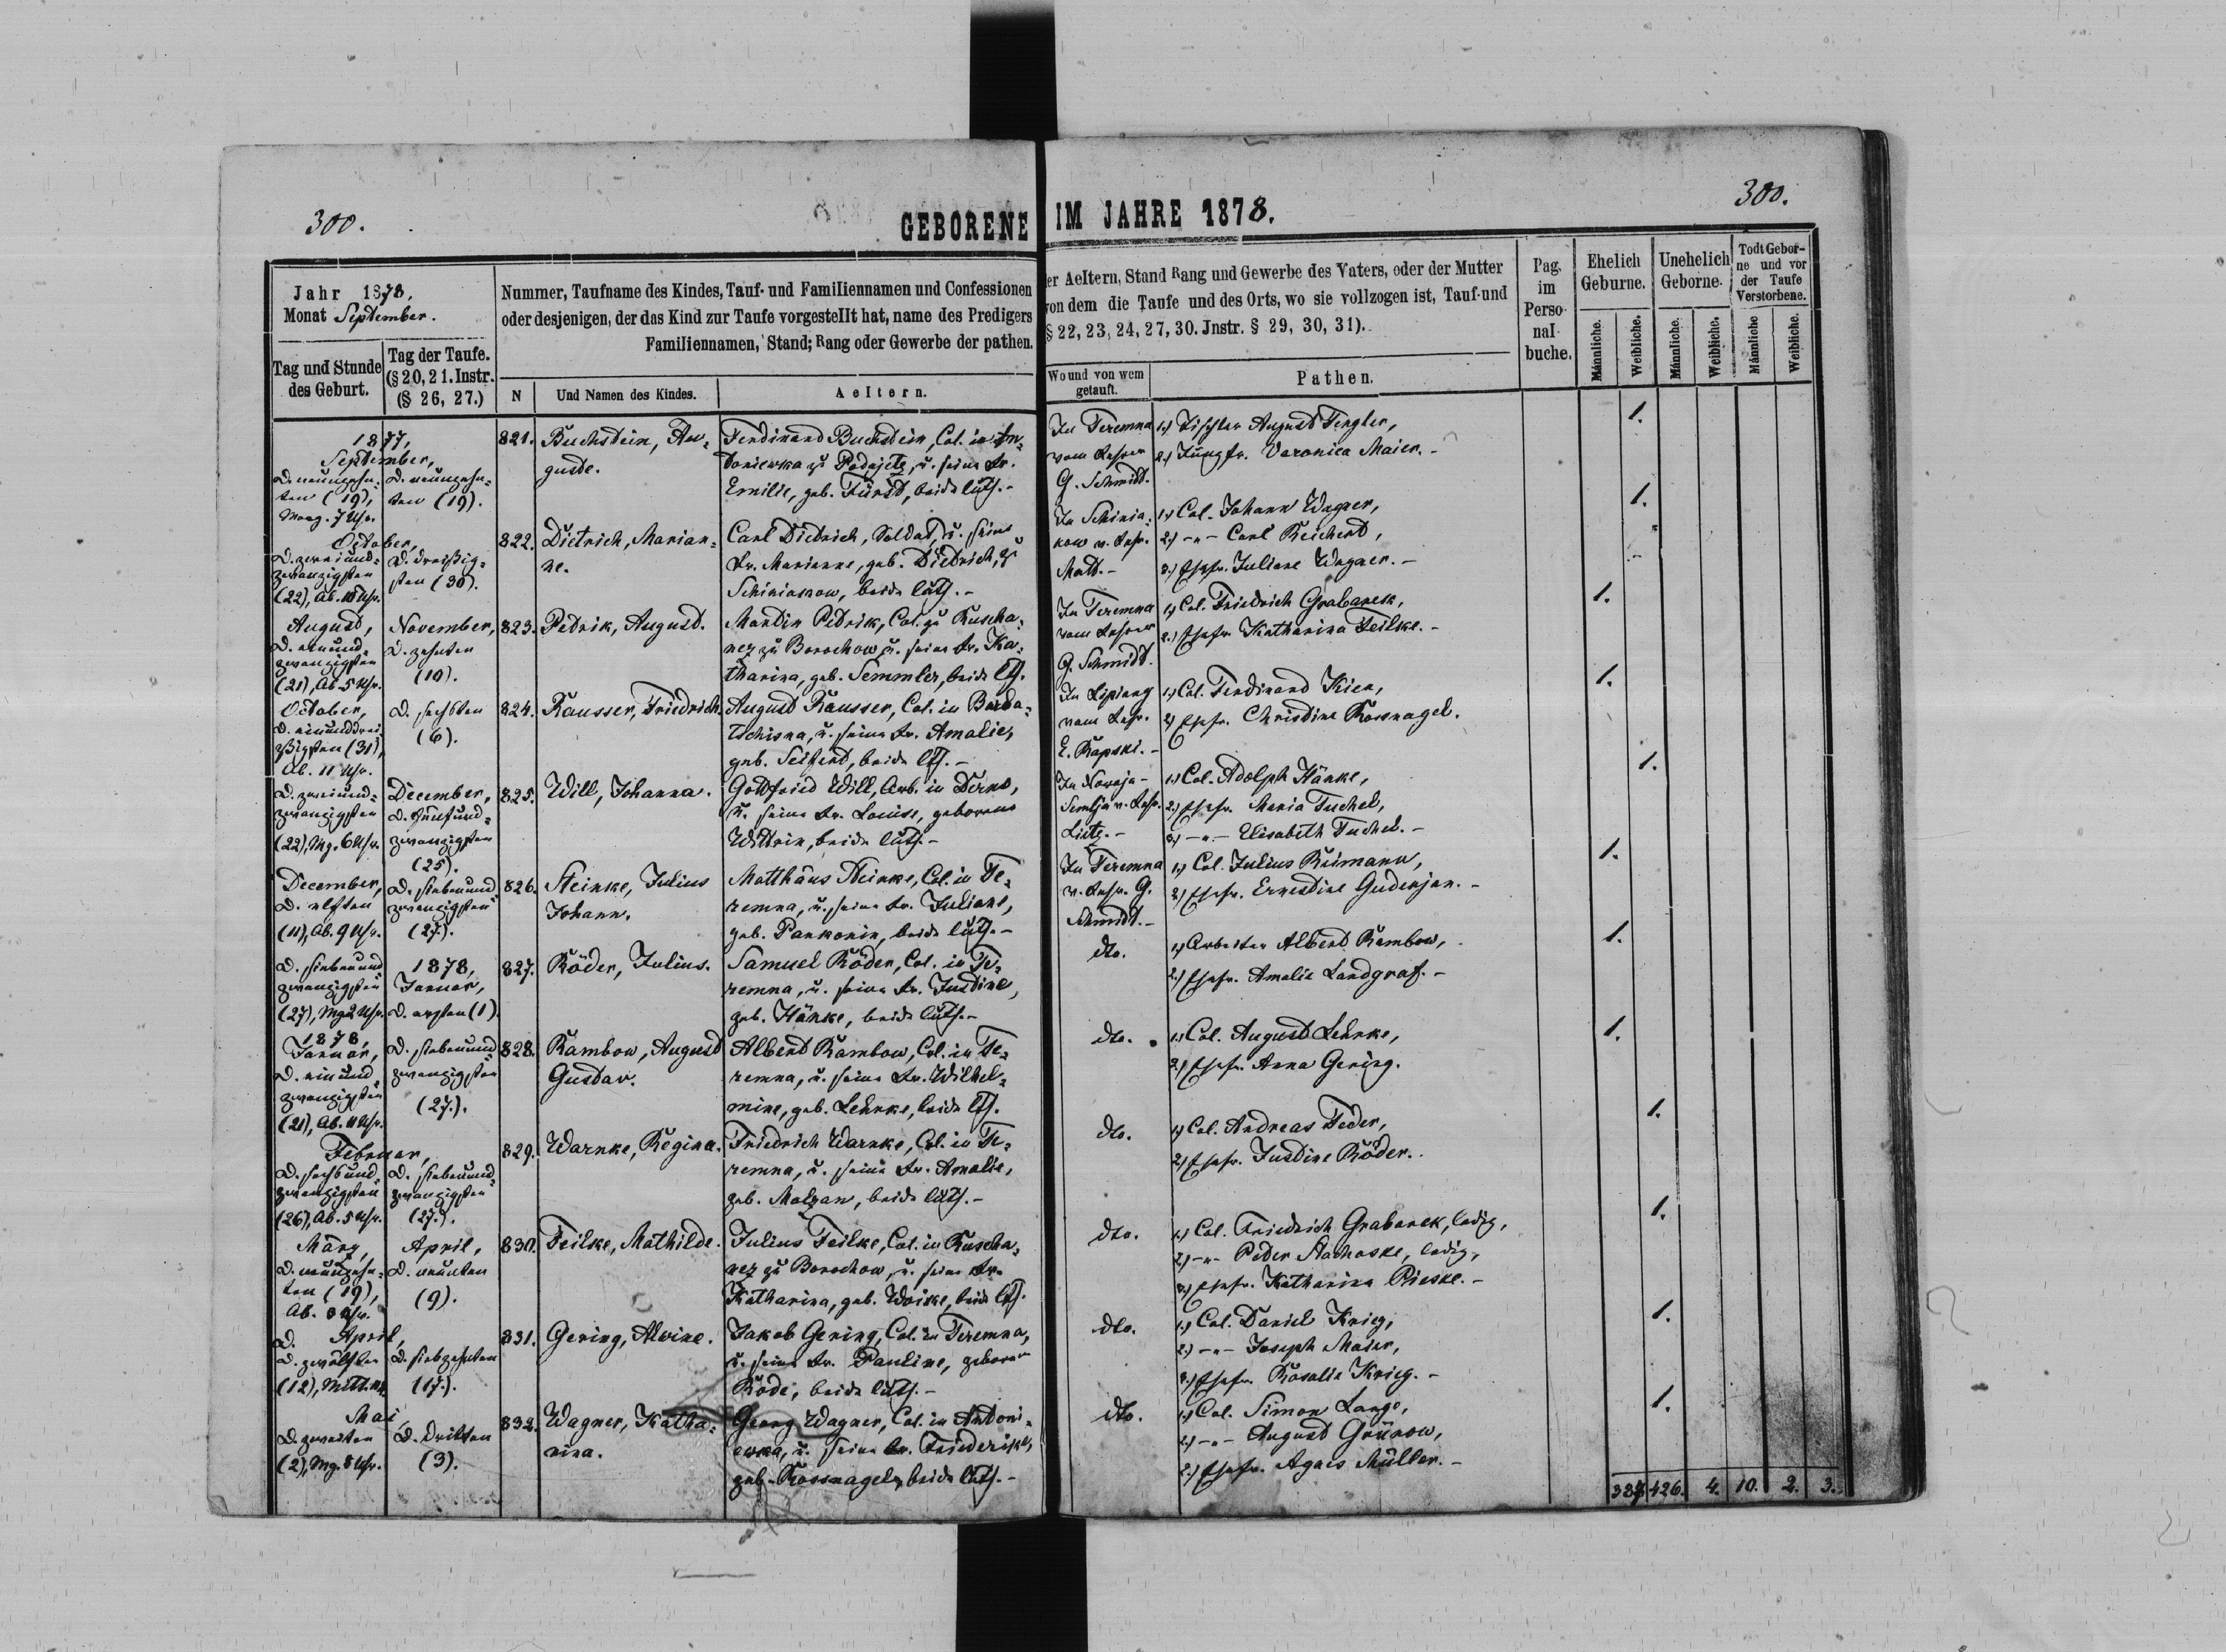 300.
300.
GEBORENE IM JAHRE 1878.
Jahr 1878,
Monat September.
Tag und Stunde
des Geburt.
Tag der Taufe.
(§ 20, 21. Instr.
(§ 26, 27.)
Nummer, Taufname des Kindes, Tauf- und Familiennamen und Confessionen
oder desjenigen, der das Kind zur Taufe vorgestellt hat, name des Predigers
Familiennamen, Stand; Rang oder Gewerbe der pathen.
N
Und Namen des Kindes.
Aeltern.
er Aeltern, Stand Rang und Gewerbe des Vaters, oder der Mutter
von dem die Taufe und des Orts, wo sie vollzogen ist, Tauf-und
§ 22, 23, 24, 27, 30. Jnstr. § 29, 30, 31).
Wo und von wem
getauft.
Pathen.
Pag.
im
Perso-
nal-
buche.
Ehelich
Geburne.
Unehelich
Geborne.
Todt Gebor-
ne und vor
der Taufe
Verstorbene.
Männliche.
Weibliche.
Männliche.
Weibliche.
Männliche
Weibliche.
1877,
September,
D. neunzehn-
ten (19),
Morg. 7 Uhr.
D. neunzehn-
ten (19).
821.
Buchstein, Au-
guste.
Ferdinand Buchstein, Col. in An-
toniewka zu Podajetz, u. seine Fr.
Emilie, geb. Fürst, beide luth.-
In Teremna
vom Lehrer
G. Schmidt.
1.) Tischler August Tengler,
2.) Jungfr. Veronica Maier.-
1.
October,
D. zweiund-
zwanzigsten
(22), Ab. 10 Uhr.
D. dreißig-
sten (30).
822.
Dietrich, Marian-
ne.
Carl Dietrich, Soldat, u. seine
Fr. Marianne, geb. Dietrich, zu
Schiniakow, beide luth.-
In Schinia-
kow v. Lehr.
Matt.-
1.) Col. Johann Wagner,
2.) -"- Carl Reichert,
3.) Ehefr. Juliane Wagner.-
1.
August,
D. einund-
zwanzigsten
(21), Ab. 5 Uhr.
November,
D. zehnten
(10).
823.
Petrik, August.
Martin Petrik, Col. zu Kuscha-
nez zu Borochow u. seine Fr. Ka-
tharina, geb. Semmler, beide lth.
In Teremna
vom Lehrer
G. Schmidt.
1.) Col. Friedrich Grabarek,
2.) Ehefr. Katharina Feilke.-
1.
October,
D. einunddrei-
ßigsten (31),
Ab. 11 Uhr.
D. sechsten
(6).
824.
Rausser, Friedrich.
August Rausser, Col. in Barda-
tschisna, u. seine Fr. Amalie,
geb. Seifert, beide lth.-
In Lipiany
vom Lehr.
E. Rapski.-
1.) Col. Ferdinand Kien,
2.) Ehefr. Christine Rossnagel.
1.
D. zweiund-
zwanzigsten
(22), Mg. 6 Uhr.
December,
D. fünfund-
zwanzigsten
(25).
825.
Will, Johanna.
Gottfried Will, Arb. in Derno,
u. seine Fr. Louise, geborene
Wittrin, beide luth.-
In Nowaja-
Semlja v. Lehr.
Lietz.-
1.) Col. Adolph Hänke,
2.) Ehefr. Maria Tuchel,
3.) -"- Elisabeth Tuchel.-
1.
December,
D. elften
(11), Ab. 9 Uhr.
D. siebenund-
zwanzigsten
(27).
826.
Steinke, Julius
Johann.
Matthäus Steinke, Col. in Te-
remna, u. seine Fr. Juliane,
geb. Pankonin, beide luth.-
In Teremna
v. Lehr. G.
Schmidt.-
1.) Col. Julius Reimann,
2.) Ehefr. Ernestine Gudenjan.-
1.
D. siebenund-
zwanzigsten
(27), Mg. 2 Uhr.
1878,
Januar,
D. ersten (1).
827.
Röder, Julius.
Samuel Röder, Col. in Te-
remna, u. seine Fr. Justine,
geb. Hänke, beide luth.-
dto.
1.) Arbeiter Albert Rambow,
2.) Ehefr. Amalie Landgraf.-
1.
1878,
Januar,
D. einund-
zwanzigsten
(21), Ab. 11 Uhr.
D. siebenund-
zwanzigsten
(27.).
828.
Rambow, August
Gustav.
Albert Rambow, Col. in Te-
remna, u. seine Fr. Wilhel-
mine, geb. Lehnke, beide lth.
dto.
1.) Col. August Lehnke,
2.) Ehefr. Anna Gering.
1.
Februar,
D. sechsund-
zwanzigsten
(26), Ab. 5 Uhr.
D. siebenund-
zwanzigsten
(27.).
829.
Warnke, Regina.
Friedrich Warnke, Col. in Te-
remna, u. seine Fr. Amalie,
geb. Malzan, beide luth.-
dto.
1.) Col. Andreas Feder,
2.) Ehefr. Justine Röder.
1.
März,
D. neunzehn-
ten (19),
Ab. 8 Uhr.
April,
D. neunten
(9).
830.
Feilke, Mathilde.
Julius Feilke, Col. in Kuscha-
nez zu Borochow, u. seine Fr.
Katharina, geb. Woiske, beide lth.
dto.
1.) Col. Friedrich Grabarek, ledig,
2.) -"- Peter Stachoske, ledig,
3.) Ehefr. Katharina Rieske.-
1.
April,
D.
D. zwölften
(12), Mitt.
D. siebzehnten
(17.).
831.
Gering, Alvine.
Jakob Gering, Col. in Teremna,
u. seine Fr. Pauline, geborene
Rode, beide luth.-
dto.
1.) Col. Daniel Krieg,
2.) -"- Joseph Maier,
3.) Ehefr. Rosalie Krieg.-
1.
Mai
D. zweiten
(2), Mg. 8 Uhr.
D. dritten
(3).
832.
Wagner, Katha-
rina.
Georg Wagner, Col. in Antoni-
ewka, u. seine Fr. Friederike,
geb. Rossnagel, beide luth.-
dto.
1.) Col. Simon Lange,
2.) -"- August Grünow,
2.) Ehefr. Agnes Müller.-
1.
426. 4. 10. 2. 3.